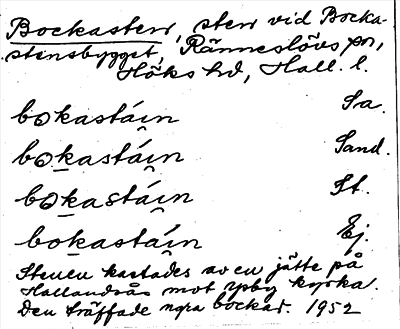 Bockasten, sten vid Bocka-
stensbygget, Ränneslövs sn,
Höks hd, Hall. l.
bokastáin Sa.
bokastáin Sand.
bokastáin St.
bokastáin Ej.
Stenen kastades av en jätte på
Hallandsås mot Ysby kyrka.
Den träffade några bockar. 1952